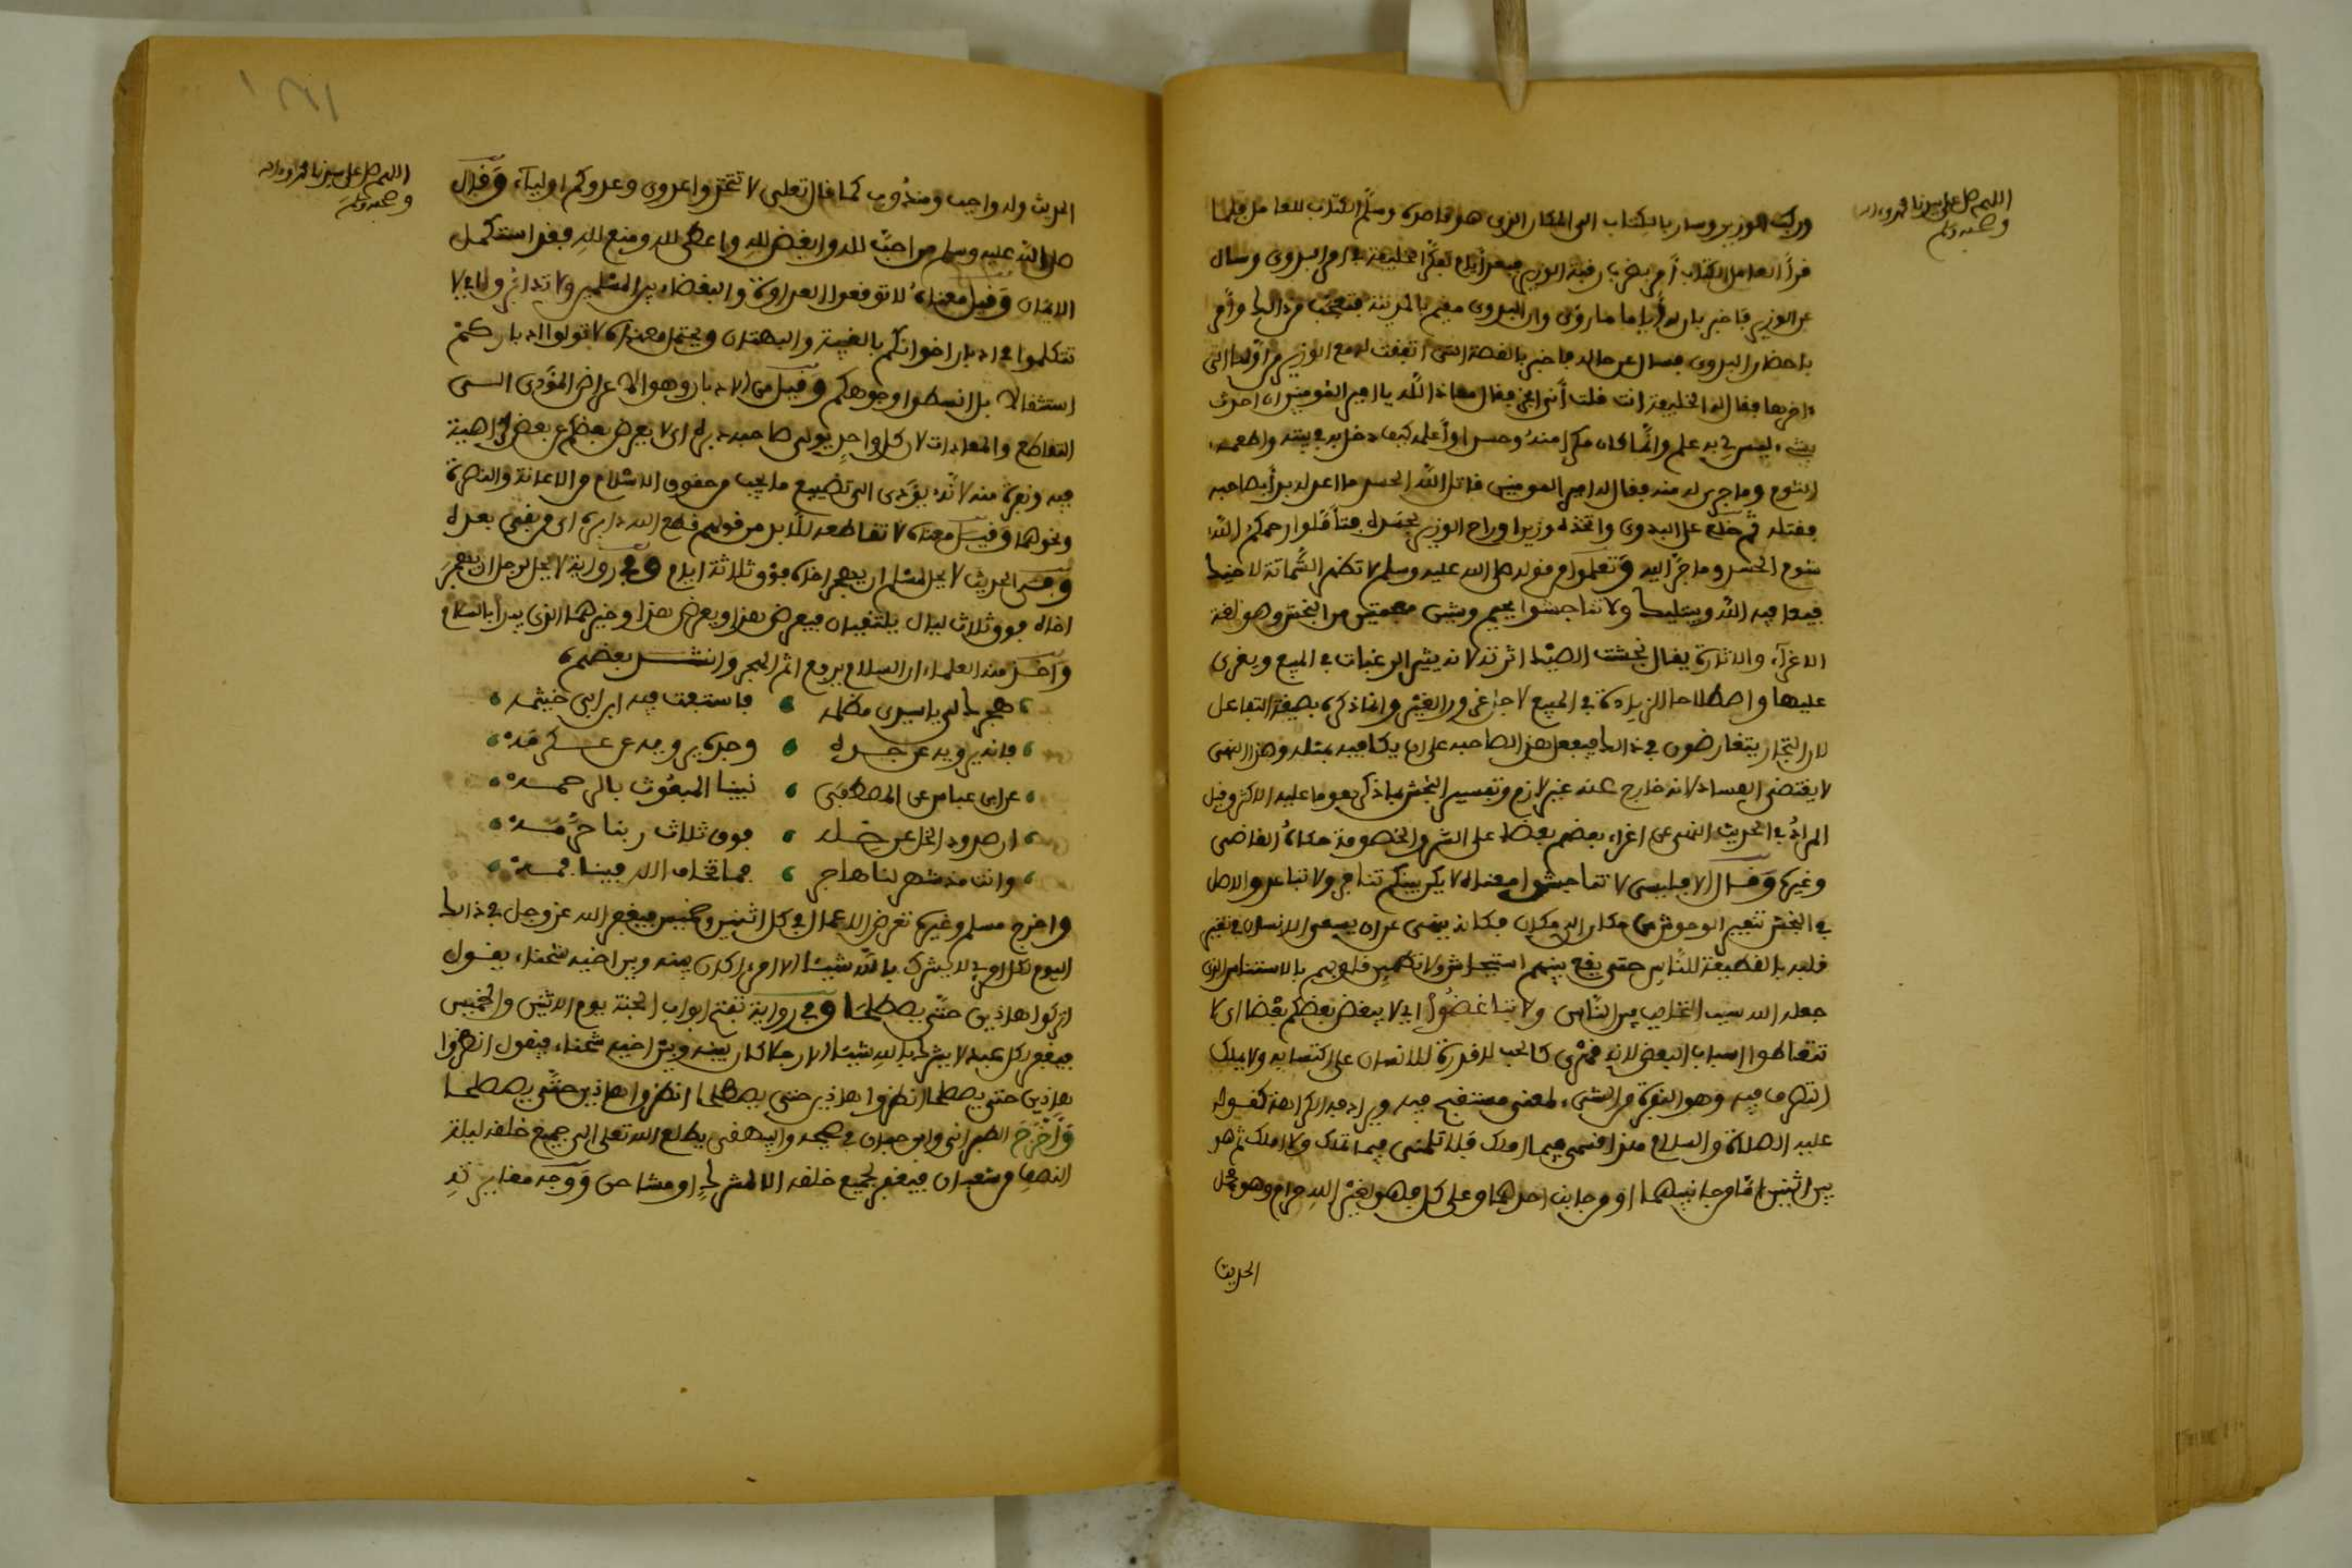 اللهم صل على سيدنا محمد وءاله
وصحبه وسلم
وركب الوزير وسار بالكتاب الى المكان الذى هو قاصده وسلم الكتاب للعامل فلما
قرأ العامل الكتاب أمر بضرب رقبة الوزير فبعد أيام تفكر الخليفة فى امر البدوى وسال
عن الوزير فاخبر بان له أياما ما روى وان البدوى مقيم بالمدينة فتعجب من ذالك وأمر
باحضار البدوى فسال عن حاله فاخبر بالقصة التى اتفقت له مع الوزير من اولها الى
ءاخرها فقال له الخليفة انت قلت أنى ابخر فقال معاذ الله يا امير المومنين ان احدث
بشىء ليس لى به علم وانما كان مكرا منه وحسدا وأعلمه كيف دخل به بيته واطعمه
الثوم وما جرى له منه فقال امير المومنين قاتل الله الحسد ما اعدله بدأ بصاحبه
فقتله ثم خلع على البدوى واتخذه وزيرا وراح الوزير بحسده فتأملوا رحمكم الله
شوم الحسد وما جر اليه وتعلموا من قوله صلى الله عليه وسلم لا تظهر الشماتة لاخيك
فيعافيه الله ويبتليك ولا تناجشوا بجيم وشين معجمتين من النجش وهو لغة
الاغراء والاثارة يقال نجشت الصيد اثرته لانه يثير الرغبات فى المبيع ويغرى
عليها واصطلاحا الزيادة فى المبيع لاجل غرور الغير وانما ذكره بصيغة التفاعل
لان التجار يتعارضون فى ذالك فيفعل هذا لصاحبه على ان يكافيه بمثله وهذا النهى
لا يقتضى الفساد لانه خارج عنه غير لازم وتفسير النجش بما ذكر هو ما عليه الاكثر وقيل
المراد فى الحديث النهى عن اغراء بعضهم بعضا على الشر والخصومة حكاه القاضى
وغيره وقال الافليسى لا تناجشوا معناه لا يكن بينكم تناجر ولا تباعد والاصل
فى النجش تنفير الوحوش من مكان الى مكان فكانه ينهى عن ان يسعى الانسان فى تغير
قلبه بالقطيعة للناس حتى يقع بينهم استيحاش ولا تطمئن قلوبهم بالاستيناس الذى
جعله الله سبب التحابب بين الناس ولا تباغضوا اى لا يبغض بعضكم بعضا اى لا
تتعاطوا اسباب البغض لانه قهرى كالحب لا قدرة للانسان على اكتسابه ولا يملك
التصرف فيه وهو النفرة من الشىء لمعنى مستقبح فيه ويرادفه الكراهة كقوله
عليه الصلاة والسلام هذا قسمى فيما املك فلا تلمنى فيما تملك ولا املك ثم هو
بين اثنين اما من جانبيهما او من جانب احدهما وعلى كل فهو لغير الله حرام وهو محل
الحديث
اللهم صل على سيدنا محمد وءاله
وصحبه وسلم
الحديث وله واجب ومندوب كما قال تعلى لا تتخذوا عدوى وعدوكم اولياء وقال
صلى الله عليه وسلم من احب لله وابغض لله واعطى لله ومنع لله فقد استكمل
الايمان وقيل معناه لا توقعوا العداوة والبغضاء بين المسلمين ولا تدابروا اى لا
تتكلموا فى ادبار اخوانكم بالغيبة والبهتان ويحتمل معناه لا تولوا ادباركم
استثقالا بل ابسطوا وجوهكم وقيل من الادبار وهو الاعراض المؤدى الى
التقاطع والمعادات لان كل واحد يولى صاحبه دبره اى لا يعرض بعضكم عن بعض كراهية
فيه ونفرة منه لانه يؤدى الى تضييع ما يجب من حقوق الاسلام من الاعانة والنصرة
ونحوهما وقيل معناه لا تقاطعه للابد من قولهم قطع الله دابره اى من بقى بعده
وفى الحديث لا يحل لمسلم ان يهجر اخاه فوق ثلاثة ايام وفى رواية لا يحل لرجل ان يهجر
اخاه فوق ثلاث ليال يلتقيان فيعرض هذا ويعرض هذا وخيرهما الذى يبدأ بالسلام
وأخذ منه العلماء ان السلام يرفع اثم الهجر وانشد بعضهم
هجرك لى يا سيدى مظلمه فاستفت فيه ابن ابى خيثمه
فانه يرويه عن جده وجده يرويه عن عكرمه
عن ابن عباس عن المصطفى نبينا المبعوث بالمرحمه
ان صدود الخل عن خله فوق ثلاث ربنا حرمه
وانت مذ شهر لنا هاجر فما تخاف الله فينا فمه
واخرج مسلم وغيره تعرض الاعمال فى كل اثنين وخميس فيغفر الله عز وجل فى ذالك
اليوم لكل امرئ لا يشرك بالله شيئا الا امرءا كان بينه وبين اخيه شحناء يقول
اتركوا هاذين حتى يصطلحا وفى رواية تفتح ابواب الجنة يوم الاثنين والخميس
فيغفر لكل عبد لا يشرك بالله شيئا الا رجلا كان بينه وبين اخيه شحناء فيقول انظروا
هاذين حتى يصطلحا انظروا هاذين حتى يصطلحا انظروا هاذين حتى يصطلحا
وأخرج الطبرانى وابن حبان فى صحيحه والبيهقى يطلع الله تعلى الى جميع خلقه ليلة
النصف من شعبان فيغفر لجميع خلقه الا لمشرك او مشاحن